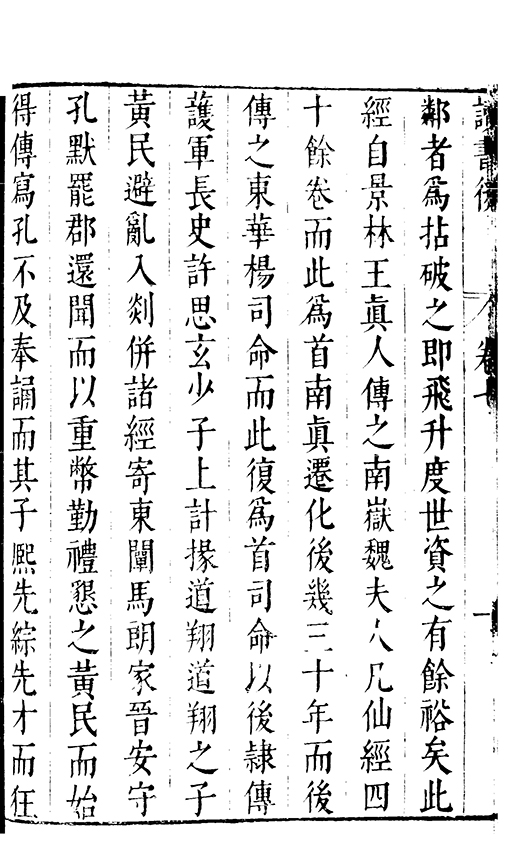 讀書後 卷七 一
鄰者爲拈破之即飛升度世資之有餘裕矣此
經自景林王眞人傳之南嶽魏夫人凡仙經四
十餘卷而此爲首南眞遷化後幾三十年而後
傳之東華楊司命而此復爲首司命以後隸傳
護軍長史許思玄少子上計掾道翔道翔之子
黃民避亂入剡併諸經寄東闡馬朗家晉安守
孔默罷郡還聞而以重幣勤禮懇之黃民而始
得傳寫孔不及奉誦而其子熈先綜先才而狂